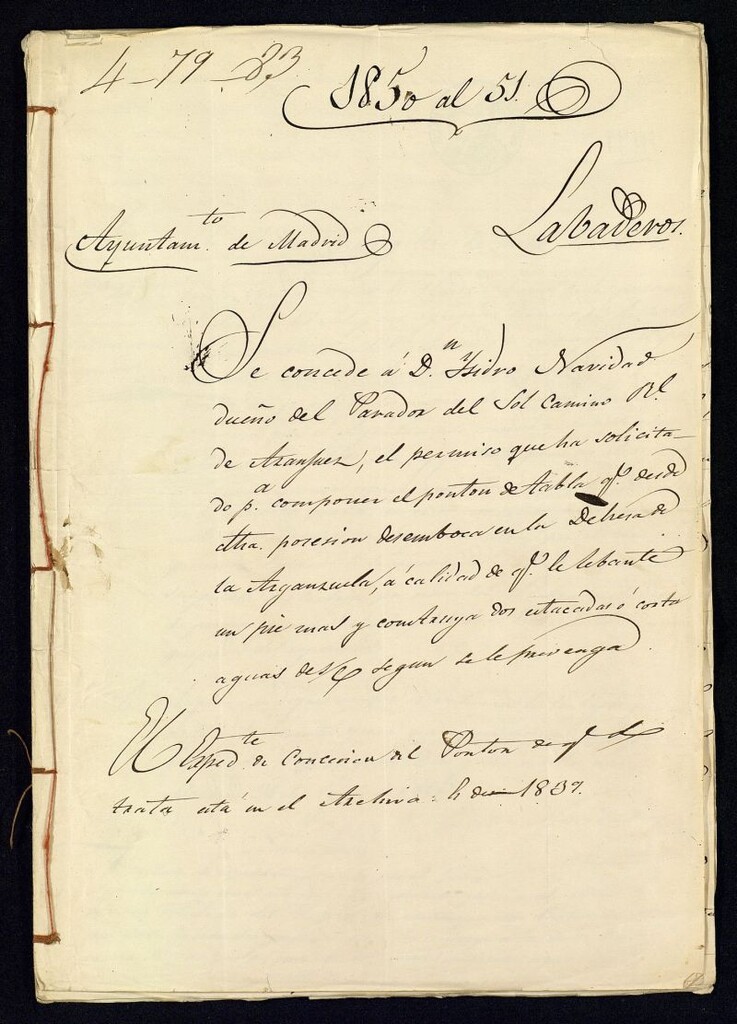 4-79-33
1850 al 51.
Ayuntam.to de Madrid
Labaderos.
Se concede á D.n Ysidro Navidad
dueño del Parador del Sol camino Rl.
de Aranjuez, el permiso que ha solicita-
do p.a componer el ponton de tabla qe. desde
dha. posesion desemboca en la Dehesa de
la Arganzuela, á calidad de qe. le lebante
un pie mas y construya dos estacadas ó corta
aguas de segun se le prevenga.
El Exped.te de concesion del Ponton de qe. se
trata está en el Archivo: de 1837.